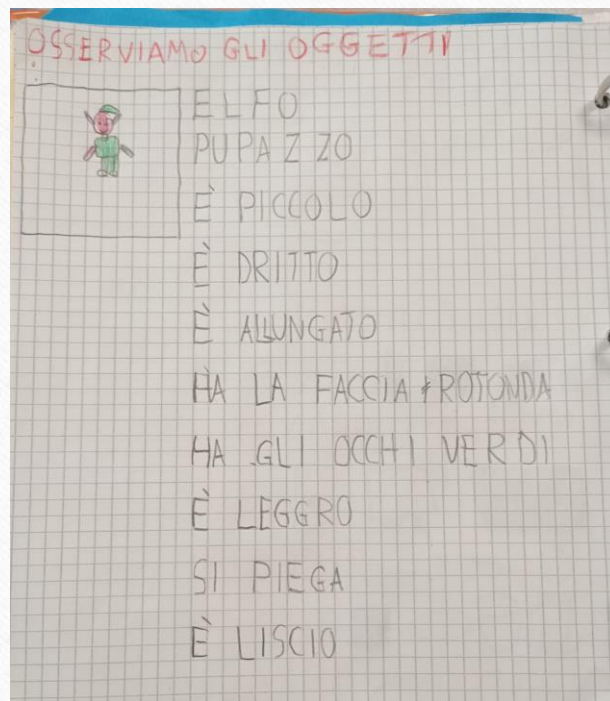 OSSERVIAMO GLI OGGETTI
ELFO
PUPAZZO
È PICCOLO
È DRITTO
È ALLUNGATO
HA LA FACCIA ROTONDA
HA GLI OCCHI VERDI
È LEGGRO
SI PIEGA
È LISCIO